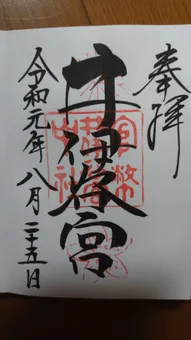 奉拝
井伊谷宮
官幣中社
令和元年八月二十五日